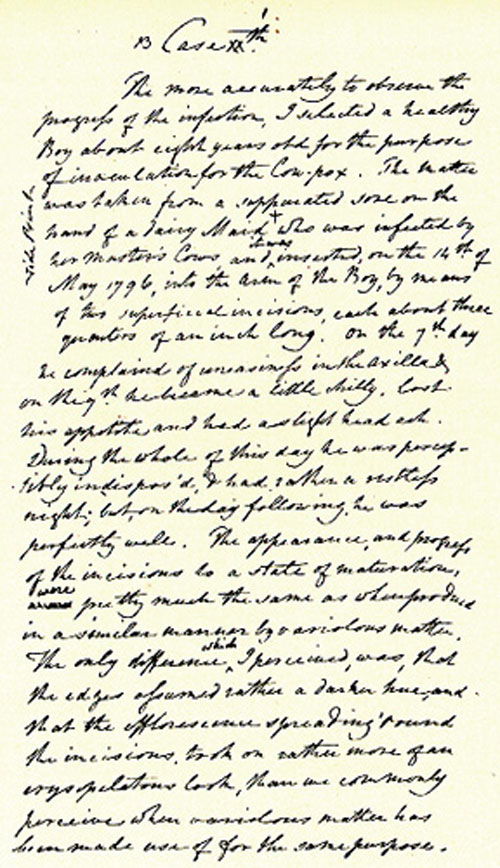 B Case th.
The more accurately to observe the
progress of the infection, I selected a healthy
Boy about eight years old for the purpose
of inoculation for the Cow-pox. The matter
was taken from a suppurated sore on the
hand of a dairy Maid + who was infected by
her Master's Cows and it was inserted, on the 14th of
May 1796, into the Arm of the Boy, by means
of two superficial incisions, each about three
quarters of an inch long. On the 7th day
he complained of uneasiness in the axilla &
on the 9th he became a little chilly, lost
his appetite and had a slight head ach.
During the whole of this day he was percep-
tibly indispos'd, & had rather a restless
night; but, on the day following, he was
perfectly well. The appearance, and progress
of the incisions to a state of maturation,
were pretty much the same as when produced
in a similar manner by variolous matter.
The only difference, which I perceived, was, that
the edges assumed rather a darker hue, and
that the efflorescence spreading round
the incisions, took on rather more of an
erysipelatous look, than we commonly
perceive when variolous matter has
been made use of for the same purpose.